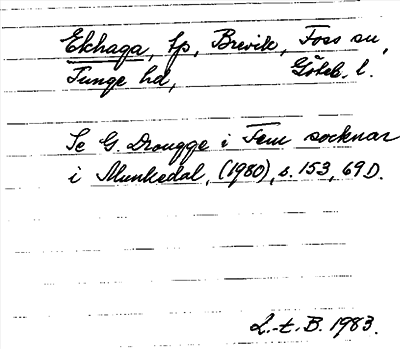 Ekhaga, lp, Brevik, Foss sn,
Tunge hd, Göteb. l.
Se G. Drougge i Fem socknar
i Munkedal, (1980), s. 153, 69D.
L.-t. B. 1983.